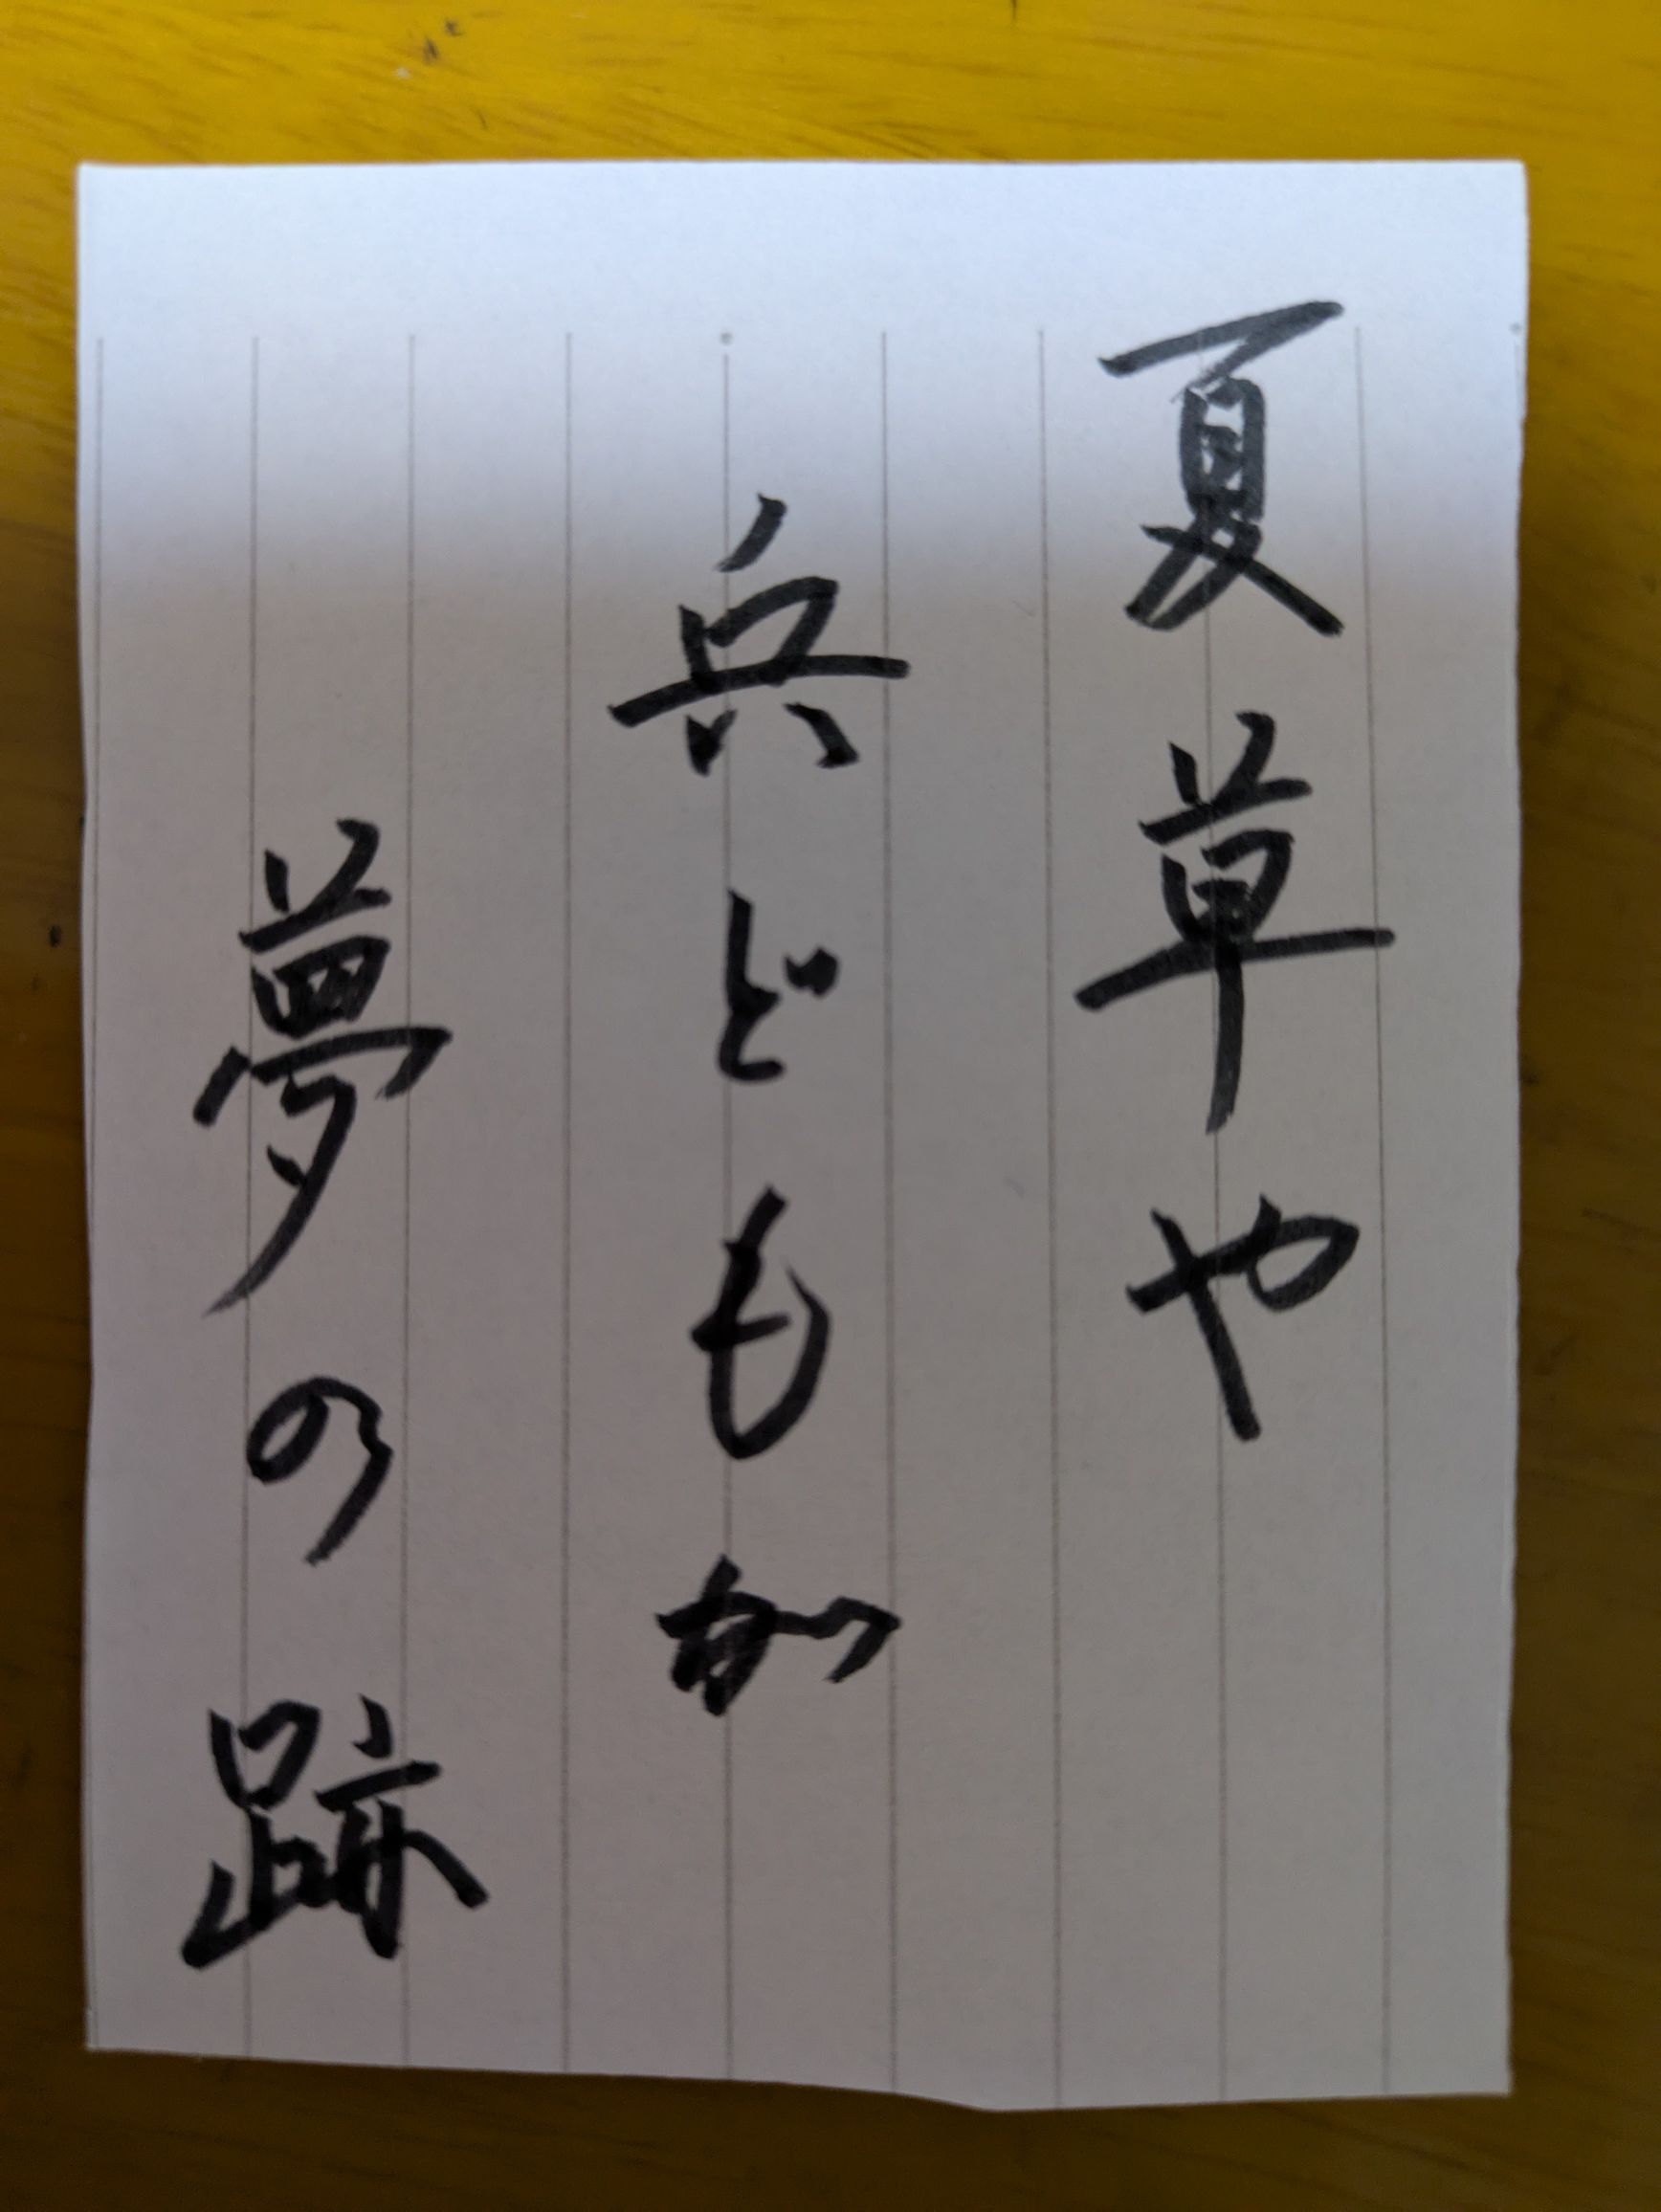 夏草や
兵どもが
夢の跡